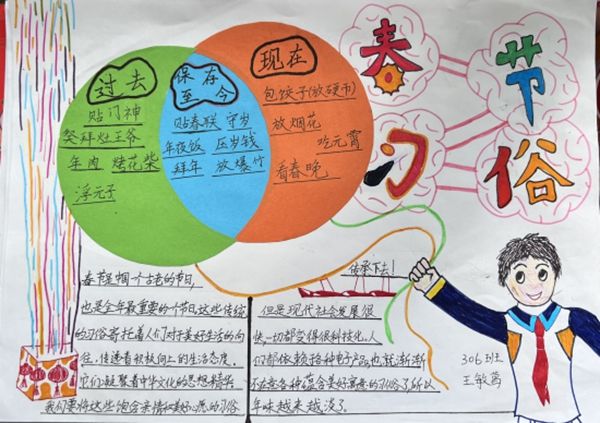 春节习俗
过去
贴门神
祭拜灶王爷
年肉 烤花柴
浮元子
保存至今
贴春联 守岁
年夜饭 压岁钱
拜年 放爆竹
现在
包饺子(放硬币)
放烟花
吃元宵
看春晚
传承下去!
春节是一个古老的节日,
也是全年最重要的个节,这些传统
的习俗寄托着人们对于美好生活的向
往,传递着积极向上的生活态度。
它们凝聚着中华文化的思想精华
我们要将这些饱含亲情和美好心愿的习俗
但是现代社会发展很
快,一切都变得很科技化。人
们都依赖各种电子产品,也就渐渐
不在意各种蕴含美好寓意的习俗了,所以
年味越来越淡了。
306班
王敏